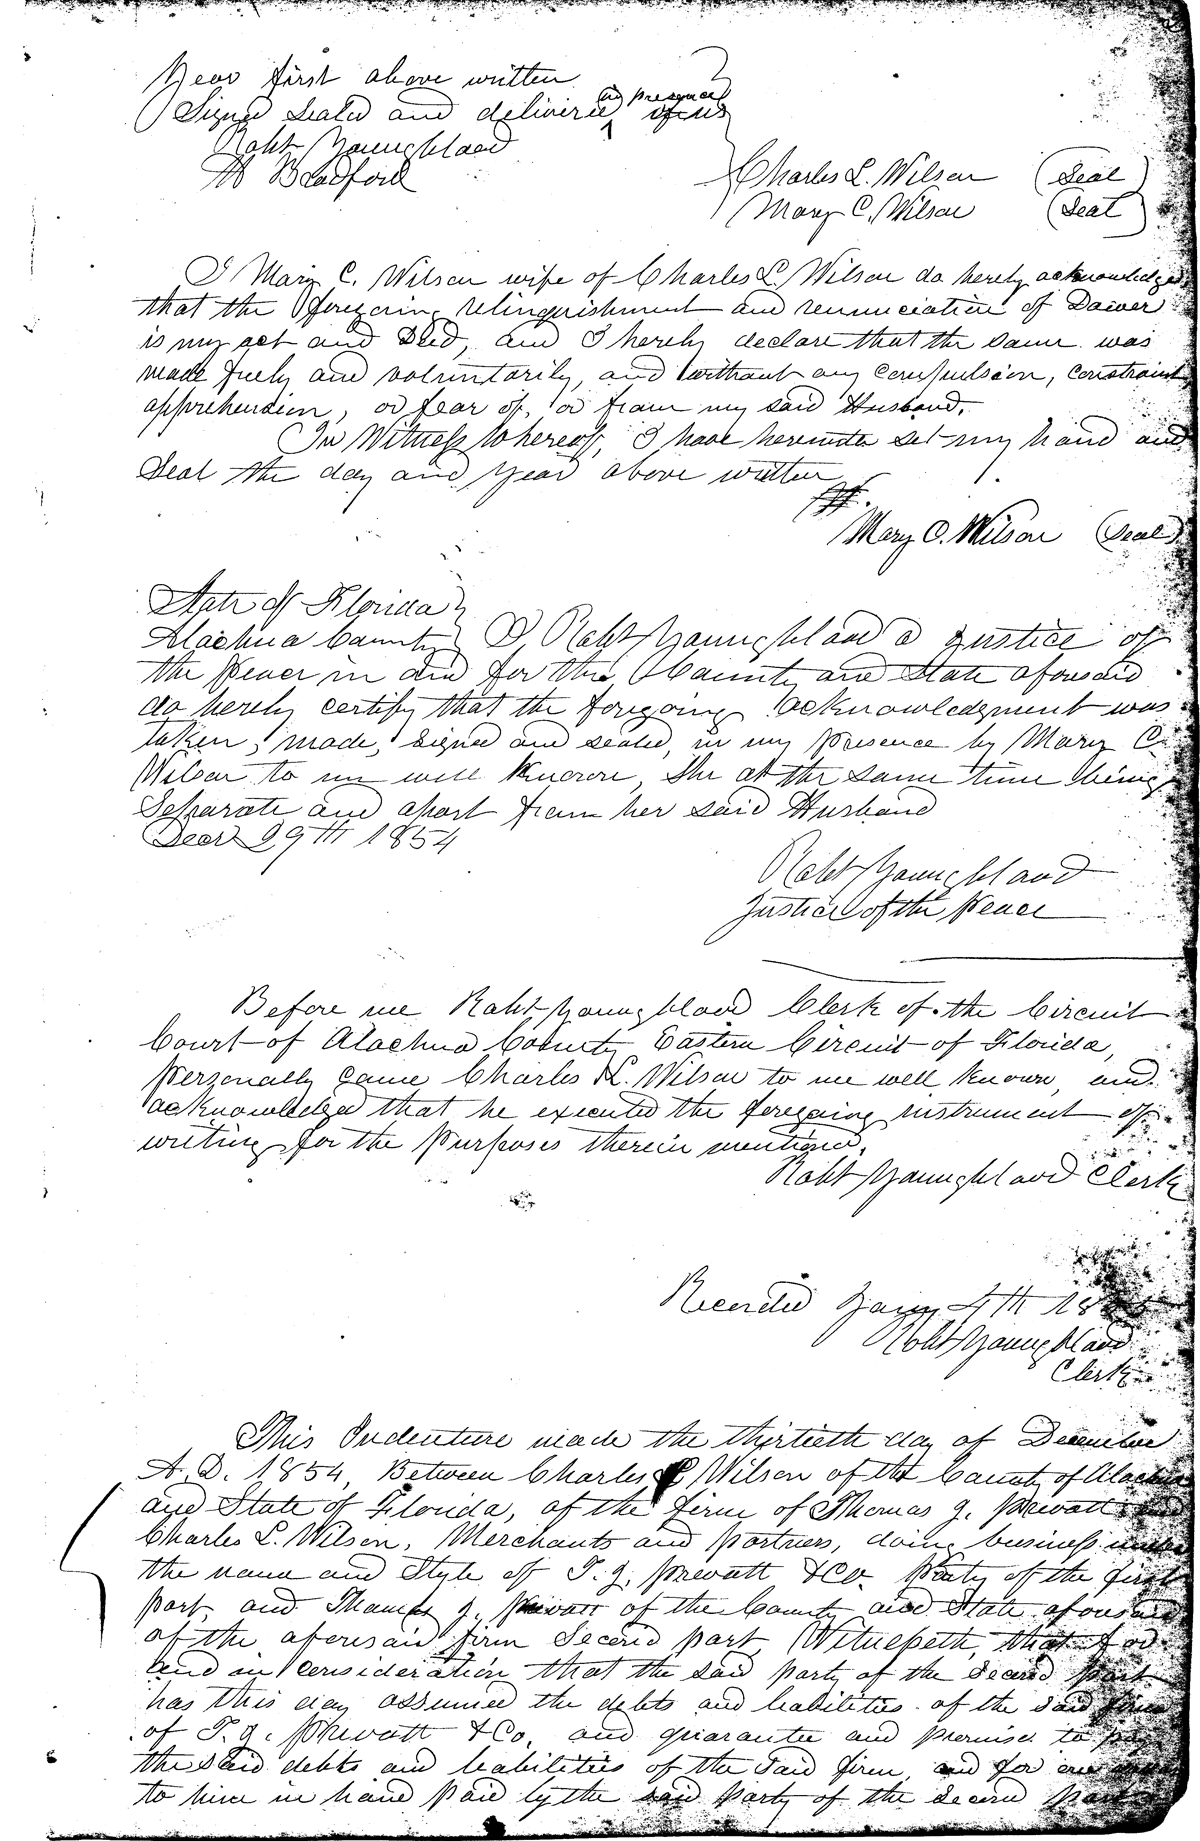 Year first above written
Signed Sealed and delivered in presence of us
Robt Youngblood
H Bradford
Charles L. Wilson (Seal)
Mary C. Wilson (Seal)
I Mary C. Wilson wife of Charles L. Wilson do hereby acknowledge
that the foregoing relinquishment and renunciation of Dower
is my act and Deed, and I hereby declare that the same was
made freely and voluntarily, and without any compulsion, constraint
apprehension, or fear of, or from my said Husband.
In Witness Whereof, I have hereunto set my hand and
Seal the day and year above written
Mary C. Wilson (Seal)
State of Florida
Alachua County I, Robt Youngblood a Justice of
the Peace in and for the County and State aforesaid
do hereby certify that the foregoing acknowledgment was
taken, made, signed and sealed, in my presence by Mary C.
Wilson to me well known, She at the same time being
Separate and apart from her said Husband
Decr 29th 1854
Robt Youngblood
Justice of the Peace
Before me Robt Youngblood Clerk of the Circuit
Court of Alachua County Eastern Circuit of Florida,
personally came Charles L. Wilson to me well known, and
acknowledged that he executed the foregoing instrument of
writing for the purposes therein mentioned.
Robt Youngblood Clerk
Recorded Jany 4th 1855
Robt Youngblood
Clerk
This Indenture made the thirtieth day of December
A.D. 1854, Between Charles L Wilson of the County of Alachua
and State of Florida, of the firm of Thomas J. Prevatt and
Charles L. Wilson, Merchants and partners, doing business under
the name and Style of T. J. Prevatt & Co. Party of the first
part, and Thomas J. Prevatt of the County and State aforesaid
of the aforesaid firm Second part, Witnesseth, that for
and in consideration that the said party of the Second part
has this day assumed the debts and liabilities of the said firm
of T. J. Prevatt & Co, and guarantee and promise to pay
the said debts and liabilities of the said firm, and for one
to him in hand paid by the said party of the Second part